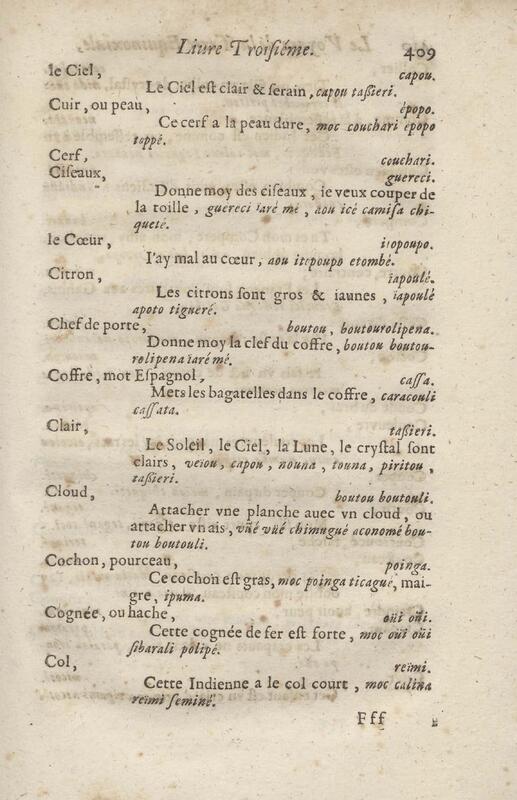 Liure Troisiéme. 409
le Ciel, capou.
Le Ciel est clair & serain, capou tassieri.
Cuir, ou peau, épopo.
Ce cerf a la peau dure, moc couchari épopo
toppé.
Cerf, couchari.
Ciseaux, guereci.
Donne moy des ciseaux, ie veux couper de
la toille, guereci ïaré mé, aou icé camisa chi-
queté.
le Cœur, itopoupo.
I'ay mal au cœur, aou itepoupo etombé.
Citron, ïapoulé.
Les citrons sont gros & iaunes, ïapoulé
apoto tigueré.
Chef de porte, boutou, boutourolipena.
Donne moy la clef du coffre, boutou boutou-
rolipena ïaré mé.
Coffre, mot Espagnol, cassa.
Mets les bagatelles dans le coffre, caracouli
cassata.
Clair, tassieri.
Le Soleil, le Ciel, la Lune, le crystal sont
clairs, veïou, capou, nouna, touna, piritou,
tassieri.
Cloud, boutou boutouli.
Attacher vne planche auec vn cloud, ou
attacher vn ais, vüé vüé chimugué aconomé bou-
tou boutouli.
Cochon, pourceau, poinga.
Ce cochon est gras, moc poinga ticagué, mai-
gre, ipuma.
Cognée, ou hache, oüi oüi.
Cette cognée de fer est forte, moc oüi oüi
sibarali polipé.
Col, reïmi.
Cette Indienne a le col court, moc calina
reïmi seminé.
Fff